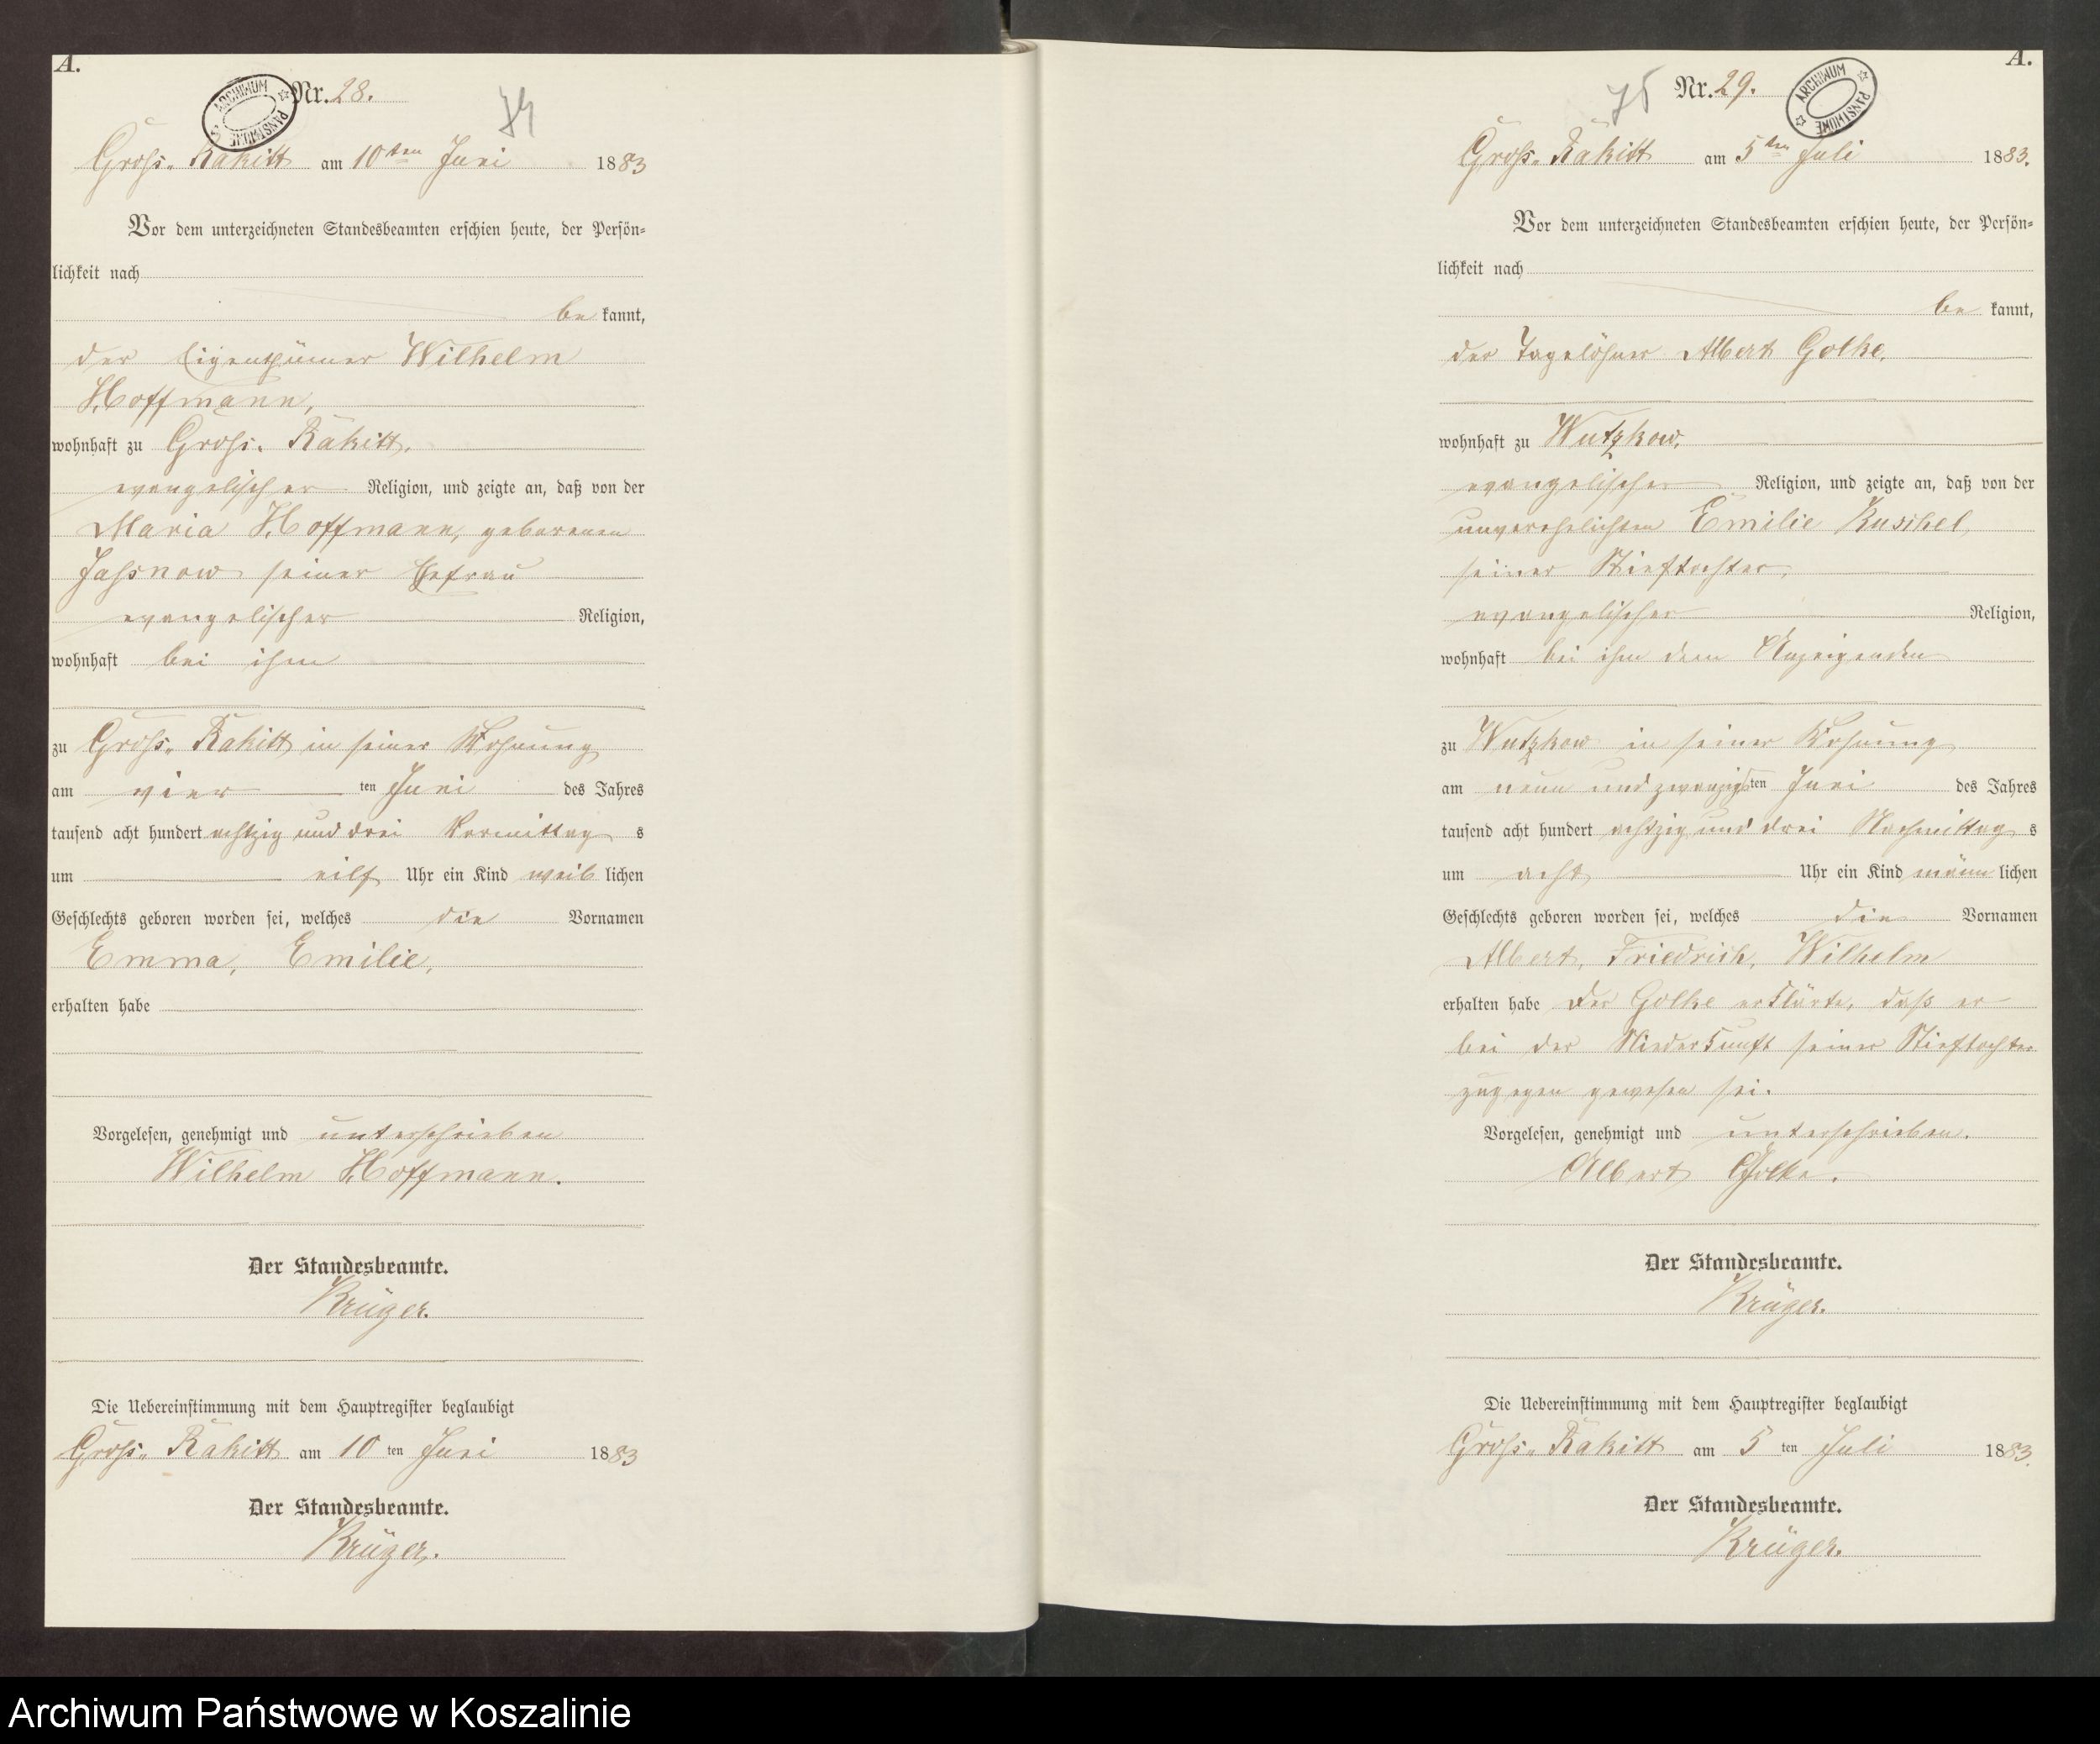 A.
Nr. 28.
74
ARCHIWUM PAŃSTWOWE
Gross-Rakitt am 10ten Juni 1883
Vor dem unterzeichneten Standesbeamten erschien heute, der Persön-
lichkeit nach
be kannt,
der Eigenthümer Wilhelm
Hoffmann,
wohnhaft zu Gross-Rakitt,
evangelischer Religion, und zeigte an, daß von der
Maria Hoffmann, geborenen
Jassnow seiner Ehefrau
evangelischer Religion,
wohnhaft bei ihm
zu Gross-Rakitt in seiner Wohnung
am vier ten Juni des Jahres
tausend acht hundert achtzig und drei Vormittag s
um eilf Uhr ein Kind weib lichen
Geschlechts geboren worden sei, welches die Vornamen
Emma, Emilie,
erhalten habe
Vorgelesen, genehmigt und unterschrieben
Wilhelm Hoffmann.
Der Standesbeamte.
Krüger.
Die Uebereinstimmung mit dem Hauptregister beglaubigt
Gross-Rakitt am 10 ten Juni 1883
Der Standesbeamte.
Krüger.
A.
Nr. 29.
75
ARCHIWUM PAŃSTWOWE
Gross-Rakitt am 5ten Juli 1883.
Vor dem unterzeichneten Standesbeamten erschien heute, der Persön-
lichkeit nach
be kannt,
der Tagelöhner Albert Golke,
wohnhaft zu Wutzkow,
evangelischer Religion, und zeigte an, daß von der
unverehelichten Emilie Kuschel,
seiner Stieftochter,
evangelischer Religion,
wohnhaft bei ihm dem Anzeigenden
zu Wutzkow in seiner Wohnung
am neun und zwanzigsten Juni des Jahres
tausend acht hundert achtzig und drei Nachmittag s
um acht Uhr ein Kind männ lichen
Geschlechts geboren worden sei, welches die Vornamen
Albert, Friedrich, Wilhelm
erhalten habe Der Golke erklärte, daß er
bei der Niederkunft seiner Stieftochter
zugegen gewesen sei.
Vorgelesen, genehmigt und unterschrieben.
Albert Golke.
Der Standesbeamte.
Krüger.
Die Uebereinstimmung mit dem Hauptregister beglaubigt
Gross-Rakitt am 5 ten Juli 1883.
Der Standesbeamte.
Krüger.
Archiwum Państwowe w Koszalinie